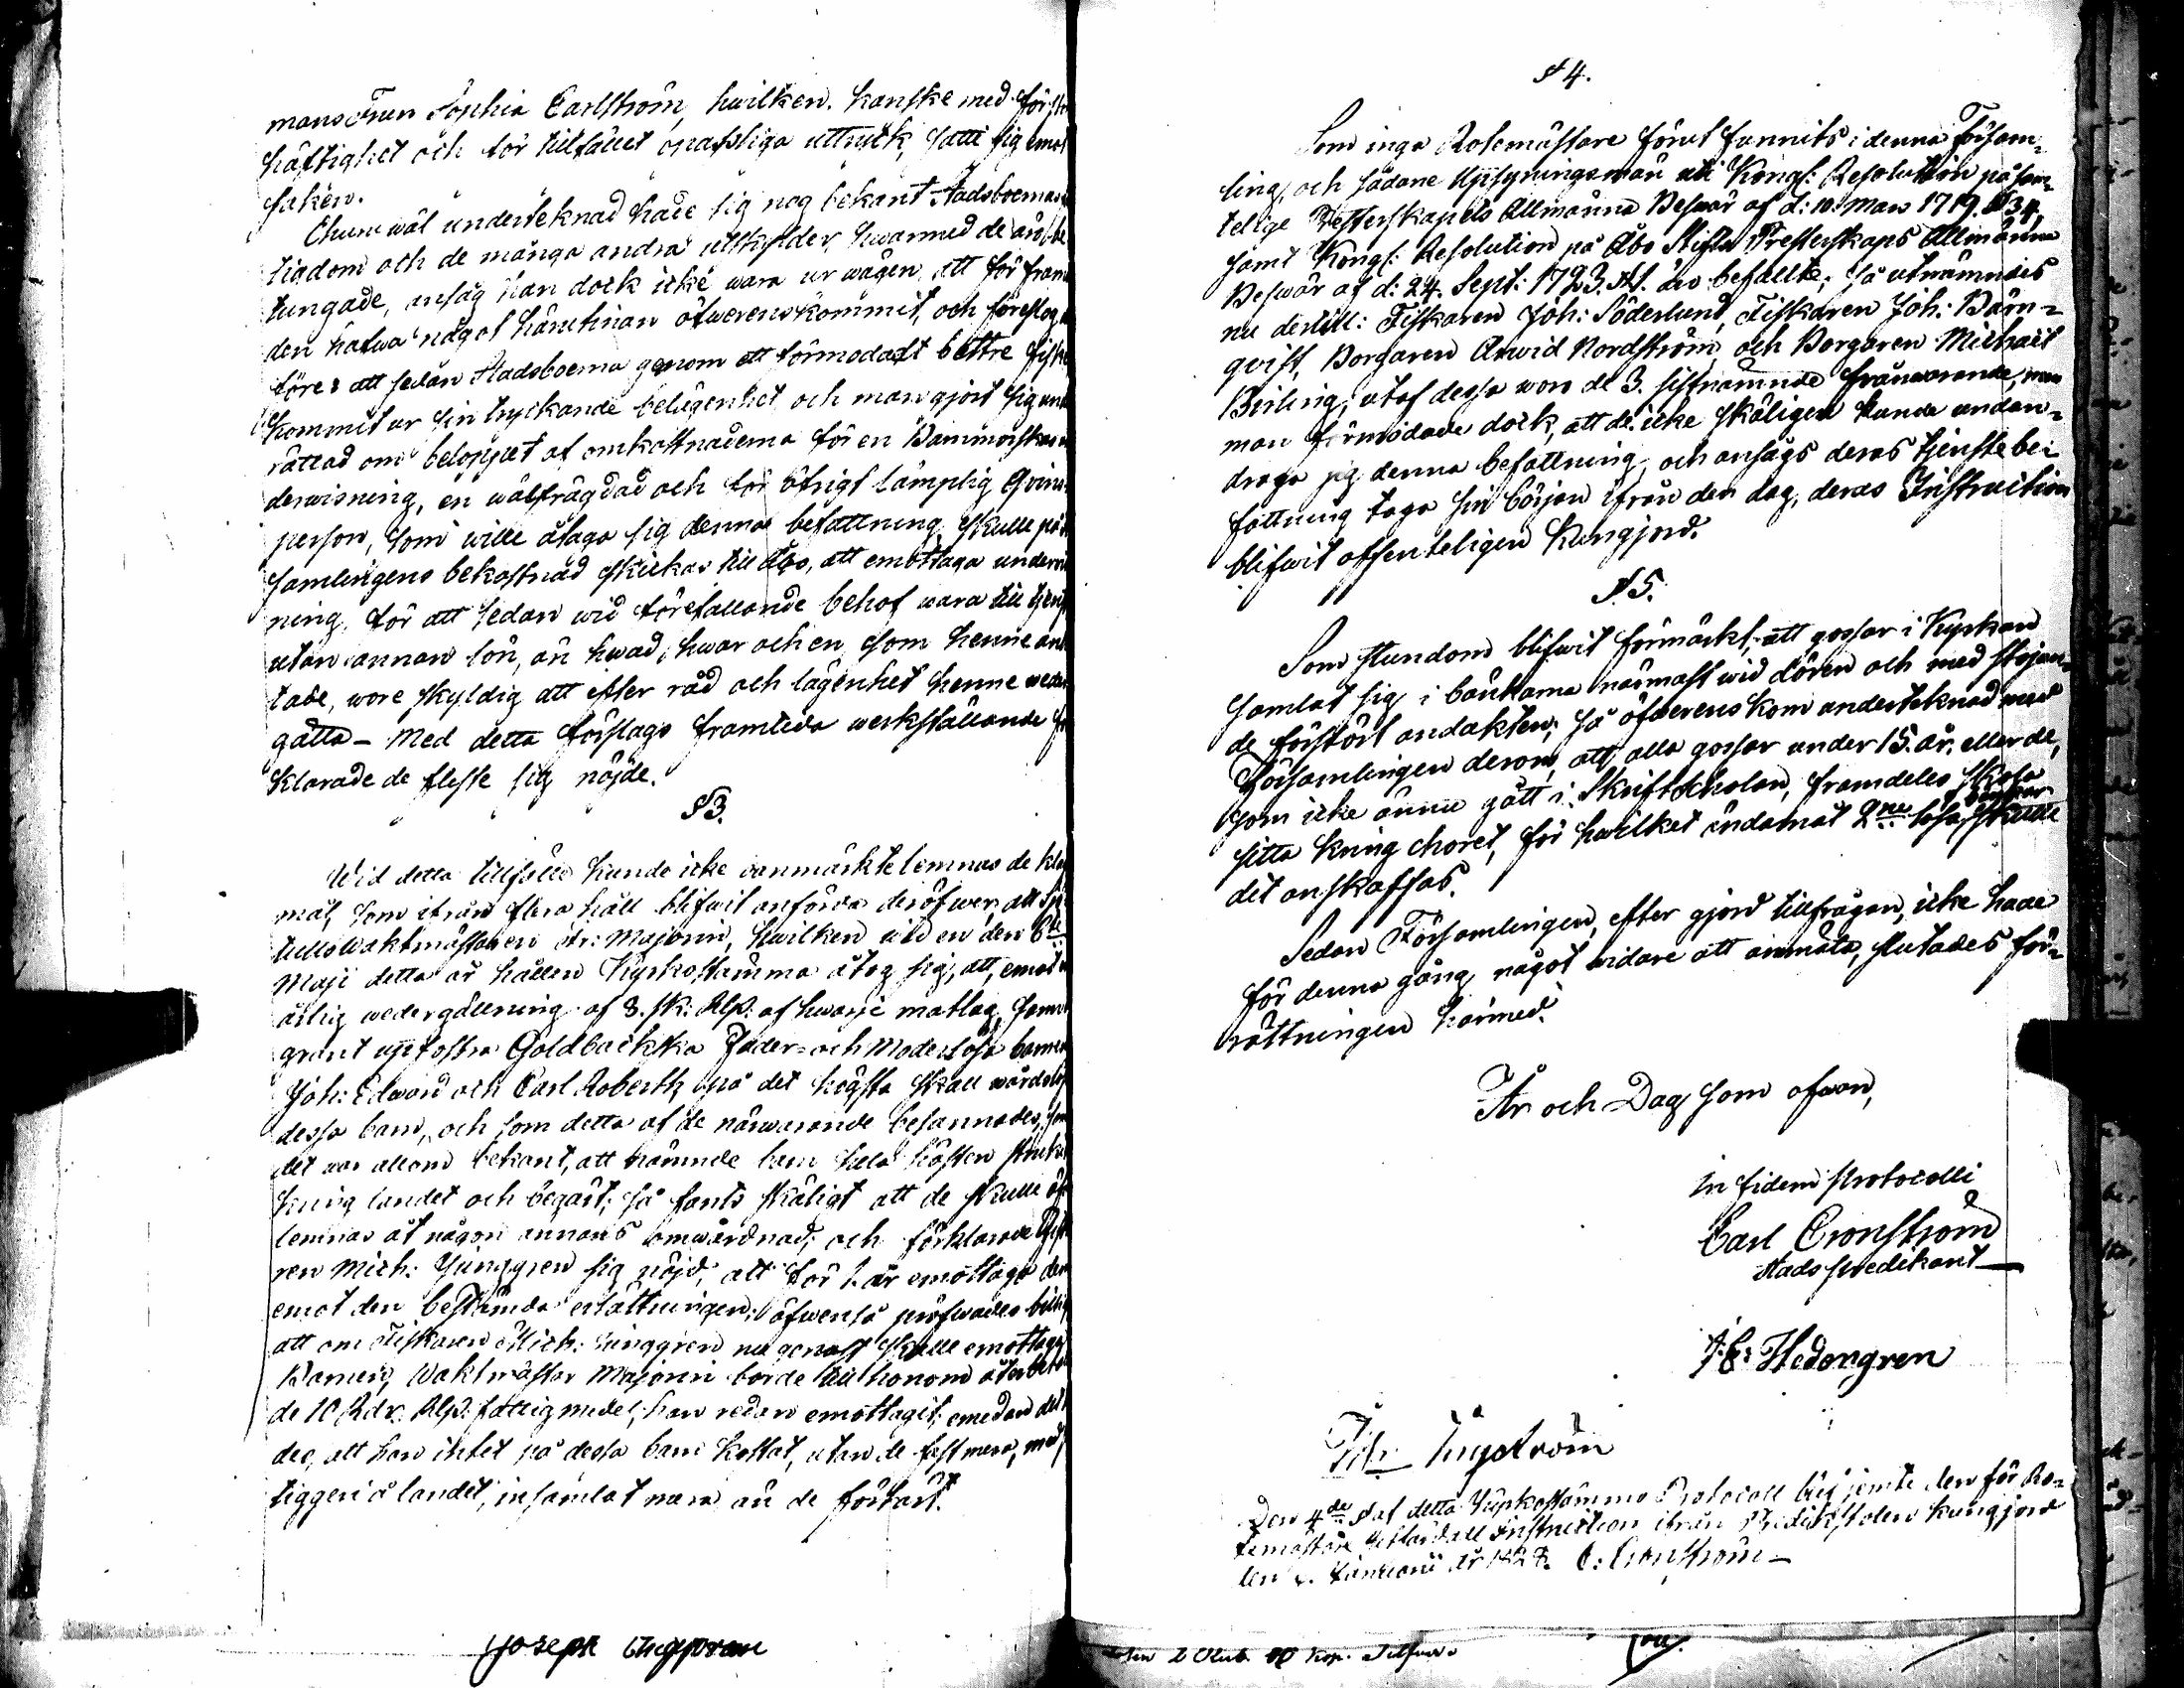 mans Frun Sophia Carlström, hwilken kanske med för stor
häftighet och för tillfället opassliga uttryck, satte sig emot
saken.
Ehuru wäl underteknad hade sig nog bekant Stadsboernas
tiadom och de många andra utskylder, hwarmed de äro be
tungade, ansåg han dock icke wara ur wägen, att för fram
den hafwa något härutinnan öfwerenskommit, och föreslog
före: att sedan Stadsboerna genom ett förmodadt bättre fiske
kommit ur sin tryckande belägenhet och man gjort sig unde
rättad om beloppet af omkostnaderna för en Barnmorskas un
derwisning, en wälfrägdad och för öfrigt lämplig Qwins
person, som wille åtaga sig denna befattning, skulle på
samlingens bekostnad skickas till Åbo, att emottaga underwis
ning, för att sedan wid förefallande behof wara till tjenst
utan annan lön, än hwad, hwar och en som henne anli
tade, wore skyldig att efter råd och lägenhet henne weder
gälla – Med detta förslags framtida werkställande för
klarade de fleste sig nöjde.
§ 3.
Wid detta tillfälle kunde icke oanmärkte lemnas de klago
mål, som ifrån flera håll blifwit anförda deröfwer, att Sjö
tullswaktmästaren Ar: Majorin, hwilken wid en den 6te
Maji detta år hållen Kyrkostämma åtog sig, att, emot en
årlig wedergällning af 8. sk: Rgs: af hwarje matlag, samt
grant uppfostra Goldbackska Fader- och Moderlösa barnen
Joh: Edward och Carl Robert, på det högsta skall wårdslöst
dessa barn, och som detta af de närwarande besannades, som
det war allom bekant, att nämnde barn hela hösten strukit
kring landet och begärt; så fants skäligt att de skulle öf
lemnas åt någon annans omwårdnad; och förklarade Fiska
ren Mich: Ljunggren sig nöjd, att för 1. år emottaga dem
emot den bestämda ersättningen; äfwenså pröfwades billigt
att om Fiskaren Mich: Ljunggren nu genast skulle emottaga
Barnen, Waktmästar Majorin borde till honom återbetala
de 10 Rdr. Rgs: fattigmedel, han redan emottagit; emedan det
des, att han intet på dessa barn kostat, utan de fast mera, med
tiggeri å landet, insamlat mera än de förtärt.
Joseph
§ 4.
Som inga Rotemästare förut funnits i denna Försam-
ling, och sådane Uppsyningsmän uti Kongl: Resolution på sam-
telige Presterskapets Allmänna Beswär af d: 10. Mars 1719. § 34,
samt Kongl: Resolution på Åbo Stifts Presterskaps Allmänna
Beswär af d: 24. Sept: 1723. §1. äro befallte; så utnämndes
nu dertill: Fiskaren Joh: Söderlund, Fiskaren Joh: Bärn-
qvist, Borgaren Arwid Nordström, och Borgaren Michael
Birling, utaf dessa woro de 3. sistnämnde frånwarande, men
man förmodade dock, att de icke skäligen kunde undan-
draga sig denna befattning, och ansågs deras tjenste be-
fattning taga sin början ifrån den dag, deras Instruction
blifwit offenteligen kungjord.
§ 5.
Som stundom blifwit förmärkt, att gossar i Kyrkan
samlat sig i bänkarna närmast wid dören och med stojan-
de förstört andakten; så öfwerenskom underteknad med
Församlingen derom, att alla gossar under 15. år, eller de,
som icke ännu gått i Skriftscholan, framdeles skola
sitta kring choret, för hwilket ändamål 2ne lösa bänkar skulle
dit anskaffas.
Sedan Församlingen, efter gjord tillfrågan, icke hade
för denna gång något widare att anmäla, slutades för-
rättningen härmed.
År och Dag som ofwan,
In fidem Protocolli
Carl Cronström
Stadspredikant
J: E: Hedengren
Ängström
Den 4de § af detta Kyrkostämmo Protocoll blef jemte den för Ro-
temästare Instruction ifrån Predikstolen kungjord
den 6. Januarii År 1828. C: Cronström